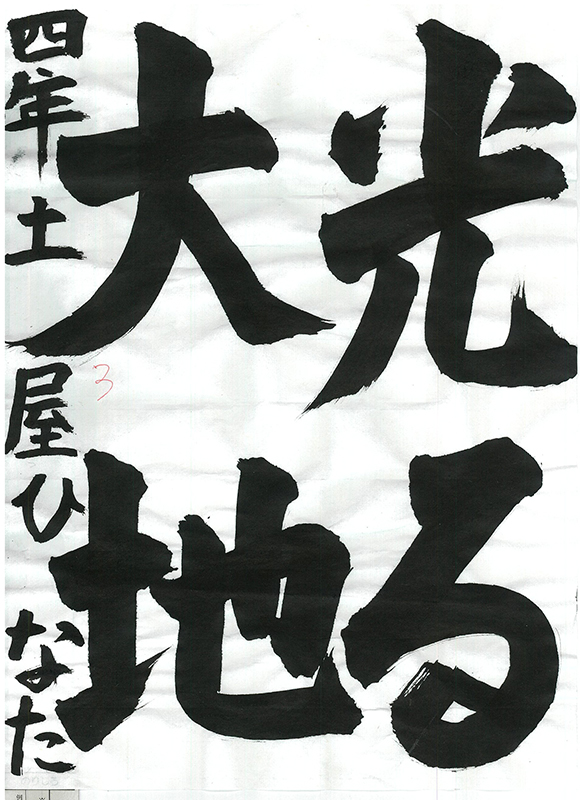 光る
大地
四年土屋ひなた
3